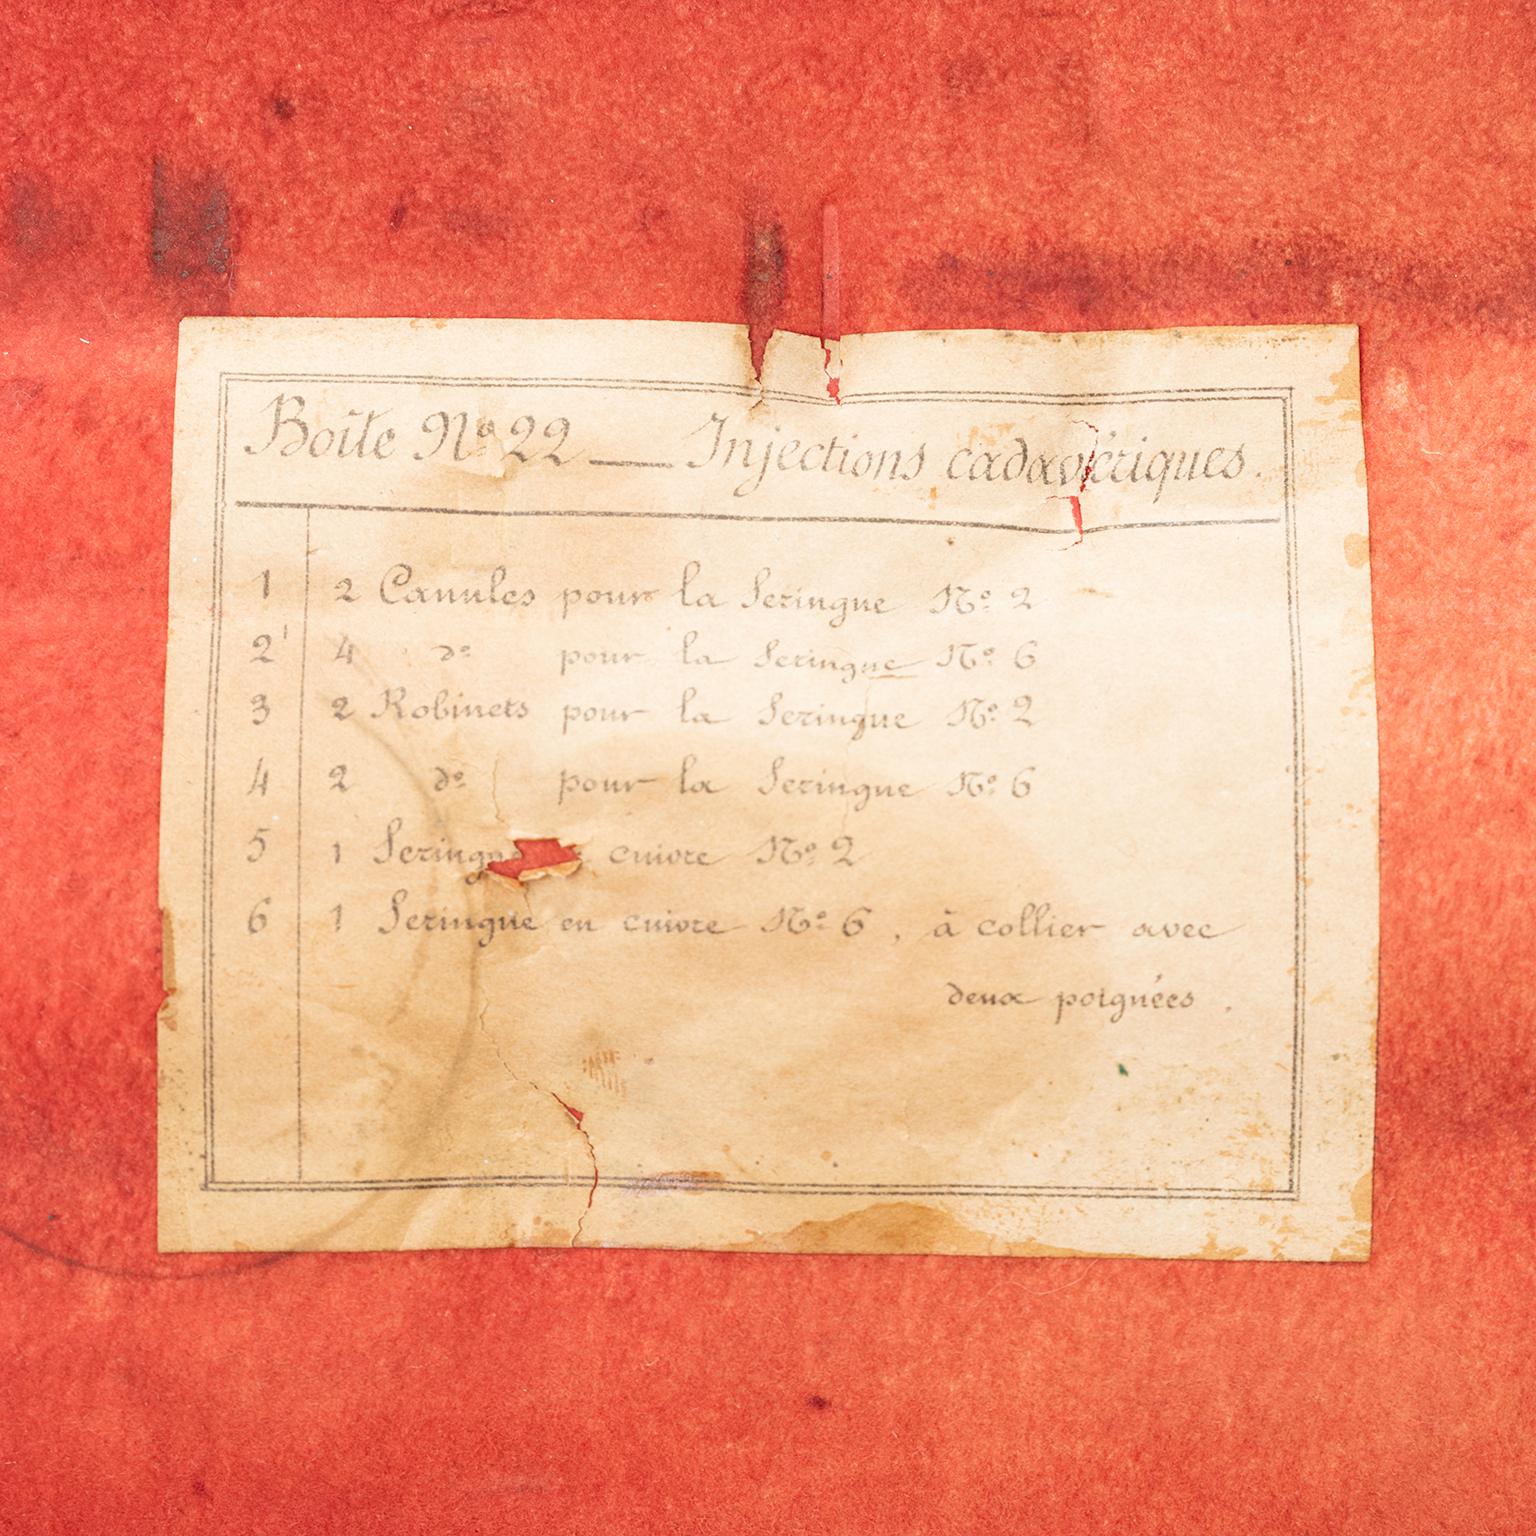 Boîte Nº 22 — Injections cadavériques.
1 2 Canules pour la Seringue Nº 2
2' 4 dº pour la Seringue Nº 6
3 2 Robinets pour la Seringue Nº 2
4 2 dº pour la Seringue Nº 6
5 1 Seringue cuivre Nº 2
6 1 Seringue en cuivre Nº 6, à collier avec
deux poignées.